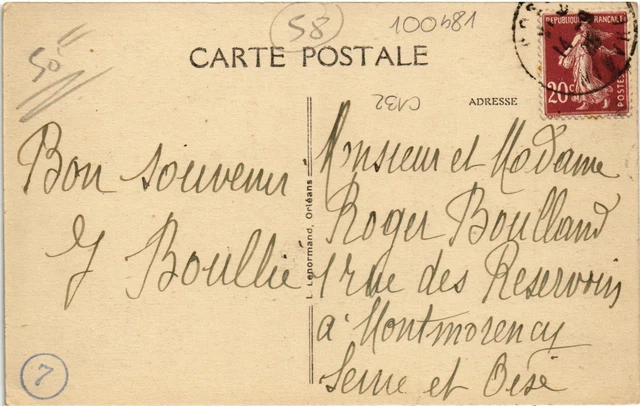 58
100481
50
CARTE POSTALE
REPUBLIQUE FRANÇAISE
20c
POSTES
C132
ADRESSE
Bon souvenir
Y Boullié
L. Lenormand, Orléans
Monsieur et Madame
Roger Boulland
1 rue des Reservoirs
à Montmorency
Seine et Oise
7